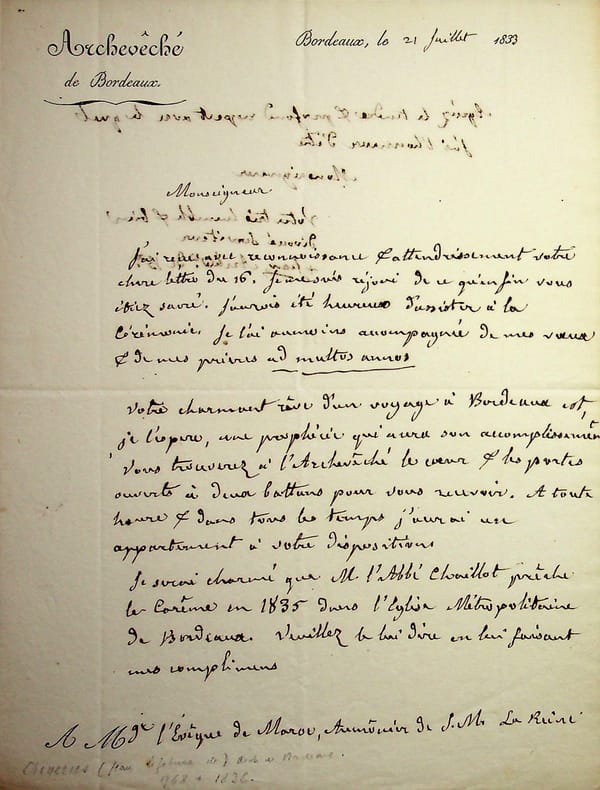 Archevêché
de Bordeaux.
Bordeaux, le 21 Juillet 1833
Monseigneur
J'ai reçu avec reconnoissance & attendrissement votre
chere lettre du 16. Je me suis réjoui de ce qu'enfin vous
étiez sacré. J'aurois été heureux d'assister à la
Cérémonie. Je l'ai aumoins accompagnée de mes vœux
& de mes prieres ad multos annos
Votre charmant rêve d'un voyage à Bordeaux est,
je l'espere, une prophétie qui aura son accomplissement
Vous trouverez à l'Archevêché le cœur & les portes
ouverts à deux battans pour vous recevoir. A toute
heure & dans tous les temps j'aurai un
appartement à votre disposition
Je serai charmé que M. l'Abbé Chaillot prêche
le Carême en 1835 dans l'Eglise Métropolitaine
de Bordeaux. Veuillez le lui dire en lui faisant
mes complimens
A Mgr l'Evêque de Maroc, Aumônier de S. M. La Reine
Cheverus (Jean de) de Bordeaux
1768 à 1836.